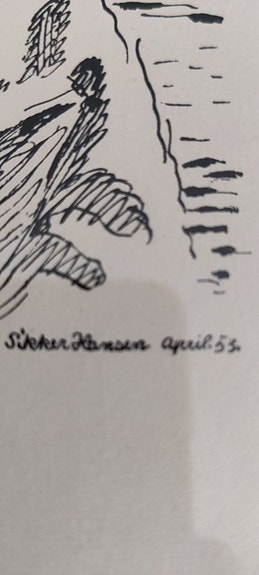 Sikker Hansen april.53.